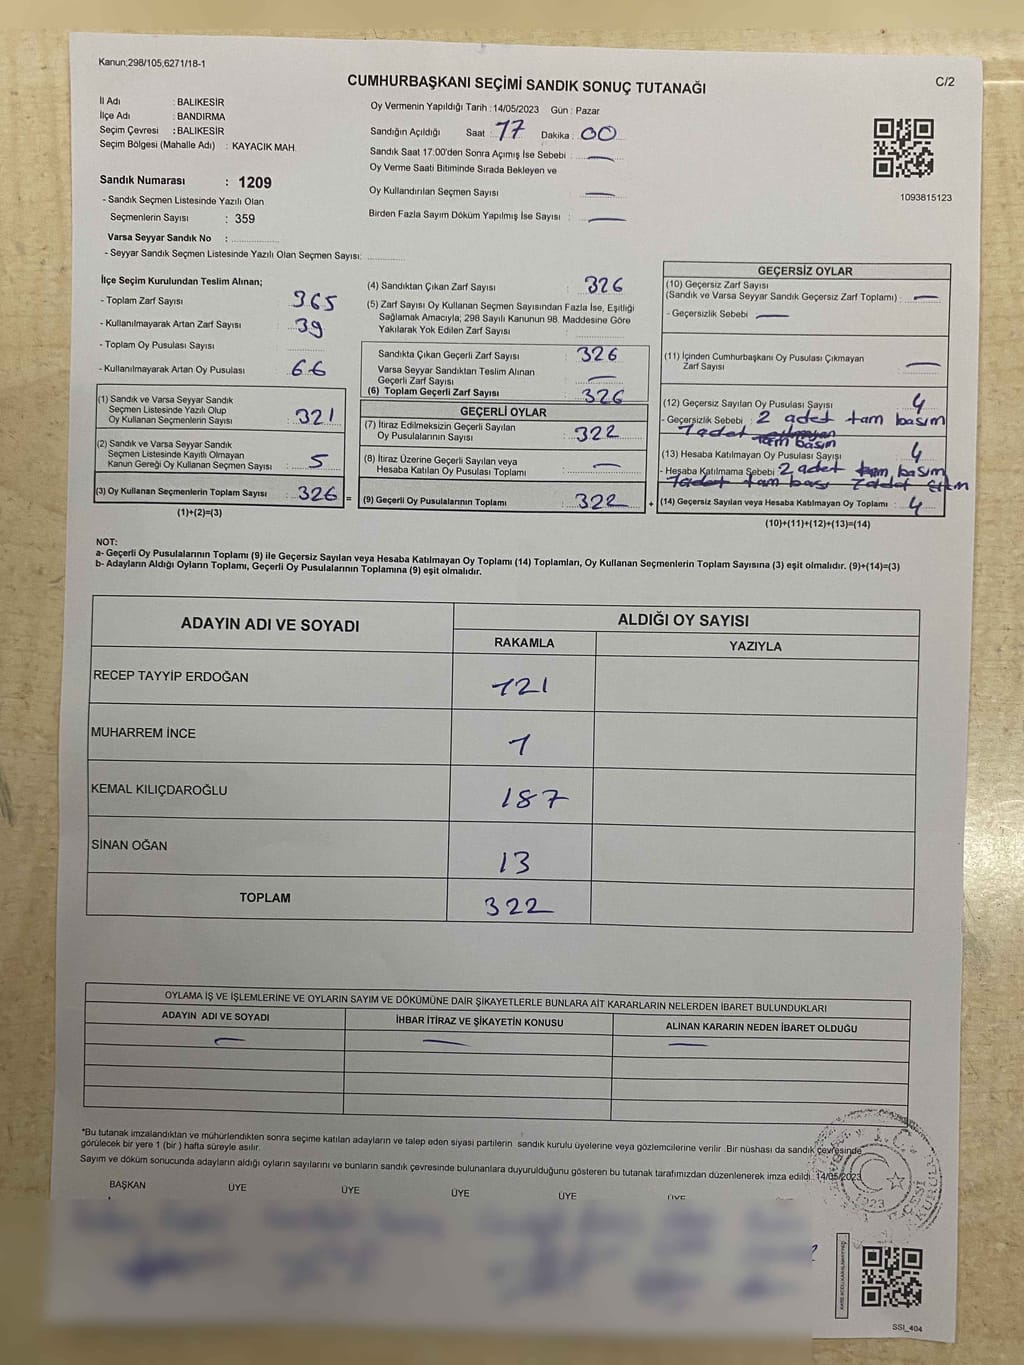 Kanun;298/105,6271/18-1
C/2
CUMHURBAŞKANI SEÇİMİ SANDIK SONUÇ TUTANAĞI
İl Adı : BALIKESİR
İlçe Adı : BANDIRMA
Seçim Çevresi : BALIKESİR
Seçim Bölgesi (Mahalle Adı) : KAYACIK MAH.
Sandık Numarası : 1209
- Sandık Seçmen Listesinde Yazılı Olan
Seçmenlerin Sayısı : 359
Varsa Seyyar Sandık No :
- Seyyar Sandık Seçmen Listesinde Yazılı Olan Seçmen Sayısı:
Oy Vermenin Yapıldığı Tarih : 14/05/2023 Gün : Pazar
Sandığın Açıldığı Saat : 17 Dakika : 00
Sandık Saat 17:00'den Sonra Açımış İse Sebebi : —
Oy Verme Saati Bitiminde Sırada Bekleyen ve
Oy Kullandırılan Seçmen Sayısı : —
Birden Fazla Sayım Döküm Yapılmış İse Sayısı : —
1093815123
İlçe Seçim Kurulundan Teslim Alınan;
- Toplam Zarf Sayısı 365
- Kullanılmayarak Artan Zarf Sayısı : 39
- Toplam Oy Pusulası Sayısı
- Kullanılmayarak Artan Oy Pusulası : 66
(1) Sandık ve Varsa Seyyar Sandık
Seçmen Listesinde Yazılı Olup
Oy Kullanan Seçmenlerin Sayısı : 321
(2) Sandık ve Varsa Seyyar Sandık
Seçmen Listesinde Kayıtlı Olmayan
Kanun Gereği Oy Kullanan Seçmen Sayısı : 5
(3) Oy Kullanan Seçmenlerin Toplam Sayısı : 326 =
(1)+(2)=(3)
(4) Sandıktan Çıkan Zarf Sayısı : 326
(5) Zarf Sayısı Oy Kullanan Seçmen Sayısından Fazla İse, Eşitliği
Sağlamak Amacıyla; 298 Sayılı Kanunun 98. Maddesine Göre
Yakılarak Yok Edilen Zarf Sayısı :
Sandıkta Çıkan Geçerli Zarf Sayısı : 326
Varsa Seyyar Sandıktan Teslim Alınan
Geçerli Zarf Sayısı : —
(6) Toplam Geçerli Zarf Sayısı : 326
GEÇERLİ OYLAR
(7) İtiraz Edilmeksizin Geçerli Sayılan
Oy Pusulalarının Sayısı : 322
(8) İtiraz Üzerine Geçerli Sayılan veya
Hesaba Katılan Oy Pusulası Toplamı : —
(9) Geçerli Oy Pusulalarının Toplamı : 322 +
GEÇERSİZ OYLAR
(10) Geçersiz Zarf Sayısı
(Sandık ve Varsa Seyyar Sandık Geçersiz Zarf Toplamı) : —
- Geçersizlik Sebebi : —
(11) İçinden Cumhurbaşkanı Oy Pusulası Çıkmayan
Zarf Sayısı : —
(12) Geçersiz Sayılan Oy Pusulası Sayısı : 4
- Geçersizlik Sebebi : 2 adet tam basım
1 adet tam basım
(13) Hesaba Katılmayan Oy Pusulası Sayısı : 4
- Hesaba Katılmama Sebebi : 2 adet tam basım
1 adet tam bası 1 adet
(14) Geçersiz Sayılan veya Hesaba Katılmayan Oy Toplamı : 4
(10)+(11)+(12)+(13)=(14)
NOT:
a- Geçerli Oy Pusulalarının Toplamı (9) ile Geçersiz Sayılan veya Hesaba Katılmayan Oy Toplamı (14) Toplamları, Oy Kullanan Seçmenlerin Toplam Sayısına (3) eşit olmalıdır. (9)+(14)=(3)
b- Adayların Aldığı Oyların Toplamı, Geçerli Oy Pusulalarının Toplamına (9) eşit olmalıdır.
ADAYIN ADI VE SOYADI ALDIĞI OY SAYISI
RAKAMLA YAZIYLA
RECEP TAYYİP ERDOĞAN 121
MUHARREM İNCE 1
KEMAL KILIÇDAROĞLU 187
SİNAN OĞAN 13
TOPLAM 322
OYLAMA İŞ VE İŞLEMLERİNE VE OYLARIN SAYIM VE DÖKÜMÜNE DAİR ŞİKAYETLERLE BUNLARA AİT KARARLARIN NELERDEN İBARET BULUNDUKLARI
ADAYIN ADI VE SOYADI İHBAR İTİRAZ VE ŞİKAYETİN KONUSU ALINAN KARARIN NEDEN İBARET OLDUĞU
— — —
*Bu tutanak imzalandıktan ve mühürlendikten sonra seçime katılan adayların ve talep eden siyasi partilerin sandık kurulu üyelerine veya gözlemcilerine verilir. Bir nüshası da sandık çevresinde
görülecek bir yere 1 (bir ) hafta süreyle asılır.
Sayım ve döküm sonucunda adayların aldığı oyların sayılarını ve bunların sandık çevresinde bulunanlara duyurulduğunu gösteren bu tutanak tarafımızdan düzenlenerek imza edildi. 14/05/2023
BAŞKAN ÜYE ÜYE ÜYE ÜYE ÜYE
T.C.
1923
SSİ_404